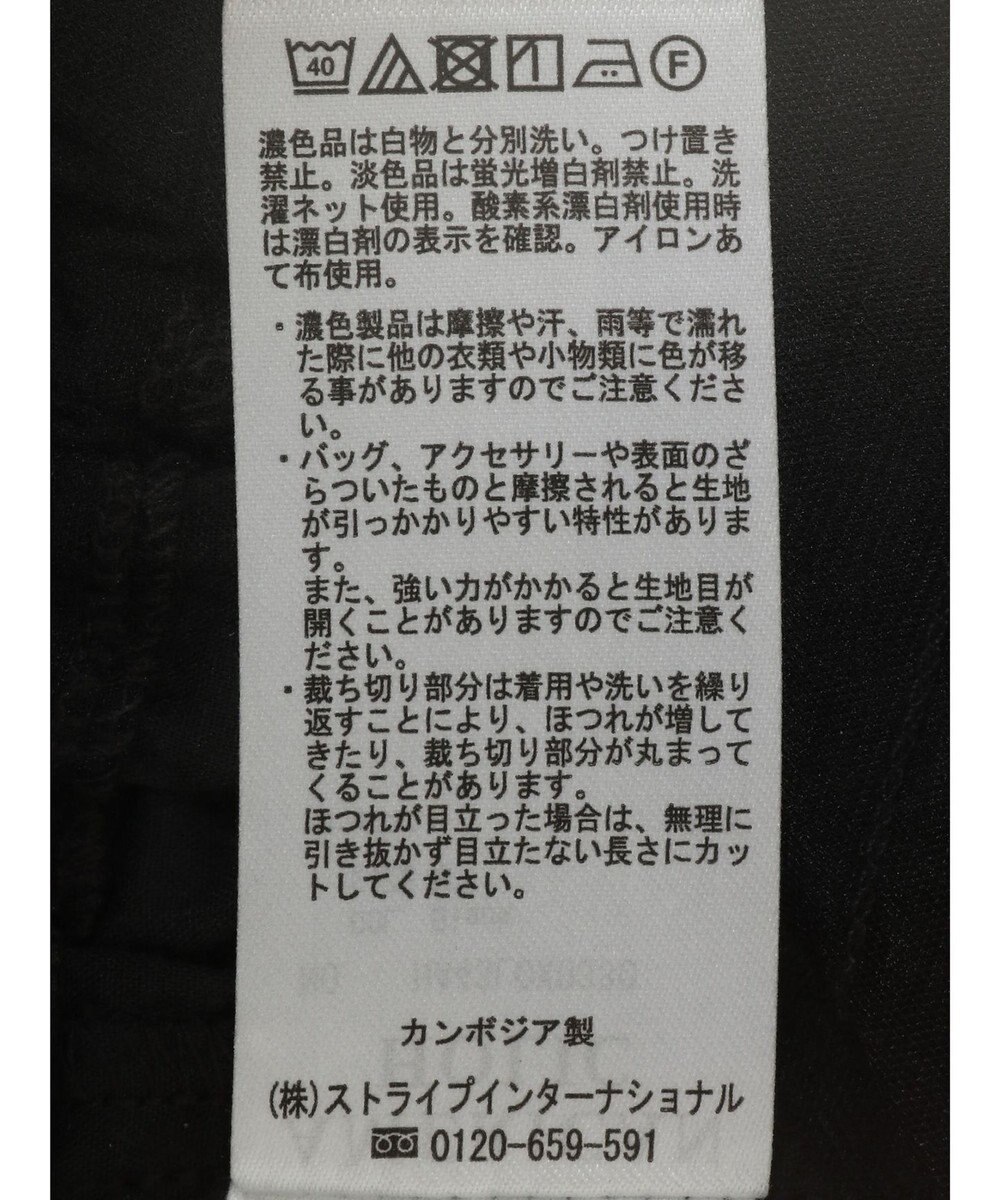 40 F
濃色品は白物と分別洗い。つけ置き
禁止。淡色品は蛍光増白剤禁止。洗
濯ネット使用。酸素系漂白剤使用時
は漂白剤の表示を確認。アイロンあ
て布使用。
・濃色製品は摩擦や汗、雨等で濡れ
た際に他の衣類や小物類に色が移
る事がありますのでご注意くださ
い。
・バッグ、アクセサリーや表面のざ
らついたものと摩擦されると生地
が引っかかりやすい特性がありま
す。
また、強い力がかかると生地目が
開くことがありますのでご注意く
ださい。
・裁ち切り部分は着用や洗いを繰り
返すことにより、ほつれが増して
きたり、裁ち切り部分が丸まって
くることがあります。
ほつれが目立った場合は、無理に
引き抜かず目立たない長さにカッ
トしてください。
カンボジア製
(株)ストライプインターナショナル
0120-659-591